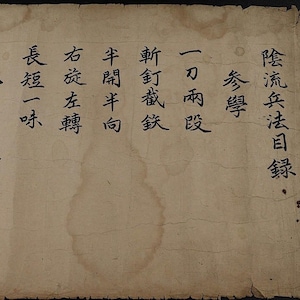 陰流兵法目録
参學
一刀兩段
斬釘截鉄
半開半向
右旋左轉
長短一味